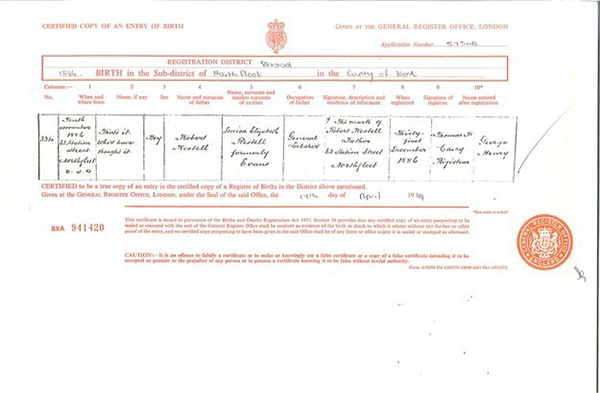 CERTIFIED COPY OF AN ENTRY OF BIRTH
GIVEN AT THE GENERAL REGISTER OFFICE, LONDON
Application Number
REGISTRATION DISTRICT Strood
1886. BIRTH in the Sub-district of Northfleet in the County of Kent
Columns:- 1 2 3 4 5 6 7 8 9 10*
No. When and where born Name, if any Sex Name and surname of father Name, surname and maiden surname of mother Occupation of father Signature, description and residence of informant When registered Signature of registrar Name entered after registration
Tenth
1886
Station
Street
Northfleet
Boy
Robert
Louisa Elizabeth
formerly
Evans
General
Labourer
The mark of
Robert
Father
Station Street
Northfleet
Thirty
first
December
1886
Thomas
Casey
Registrar
George
Henry
CERTIFIED to be a true copy of an entry in the certified copy of a Register of Births in the District above mentioned.
Given at the GENERAL REGISTER OFFICE, LONDON, under the Seal of the said Office, the day of April 1989
*See note overleaf
BXA 941420
This certificate is issued in pursuance of the Births and Deaths Registration Act 1953. Section 34 provides that any certified copy of an entry purporting to be
sealed or stamped with the seal of the General Register Office shall be received as evidence of the birth or death to which it relates without any further or other
proof of the entry, and no certified copy purporting to have been given in the said Office shall be of any force or effect unless it is sealed or stamped as aforesaid.
CAUTION:- It is an offence to falsify a certificate or to make or knowingly use a false certificate or a copy of a false certificate intending it to be
accepted as genuine to the prejudice of any person or to possess a certificate knowing it to be false without lawful authority.
GENERAL REGISTER OFFICE
ENGLAND